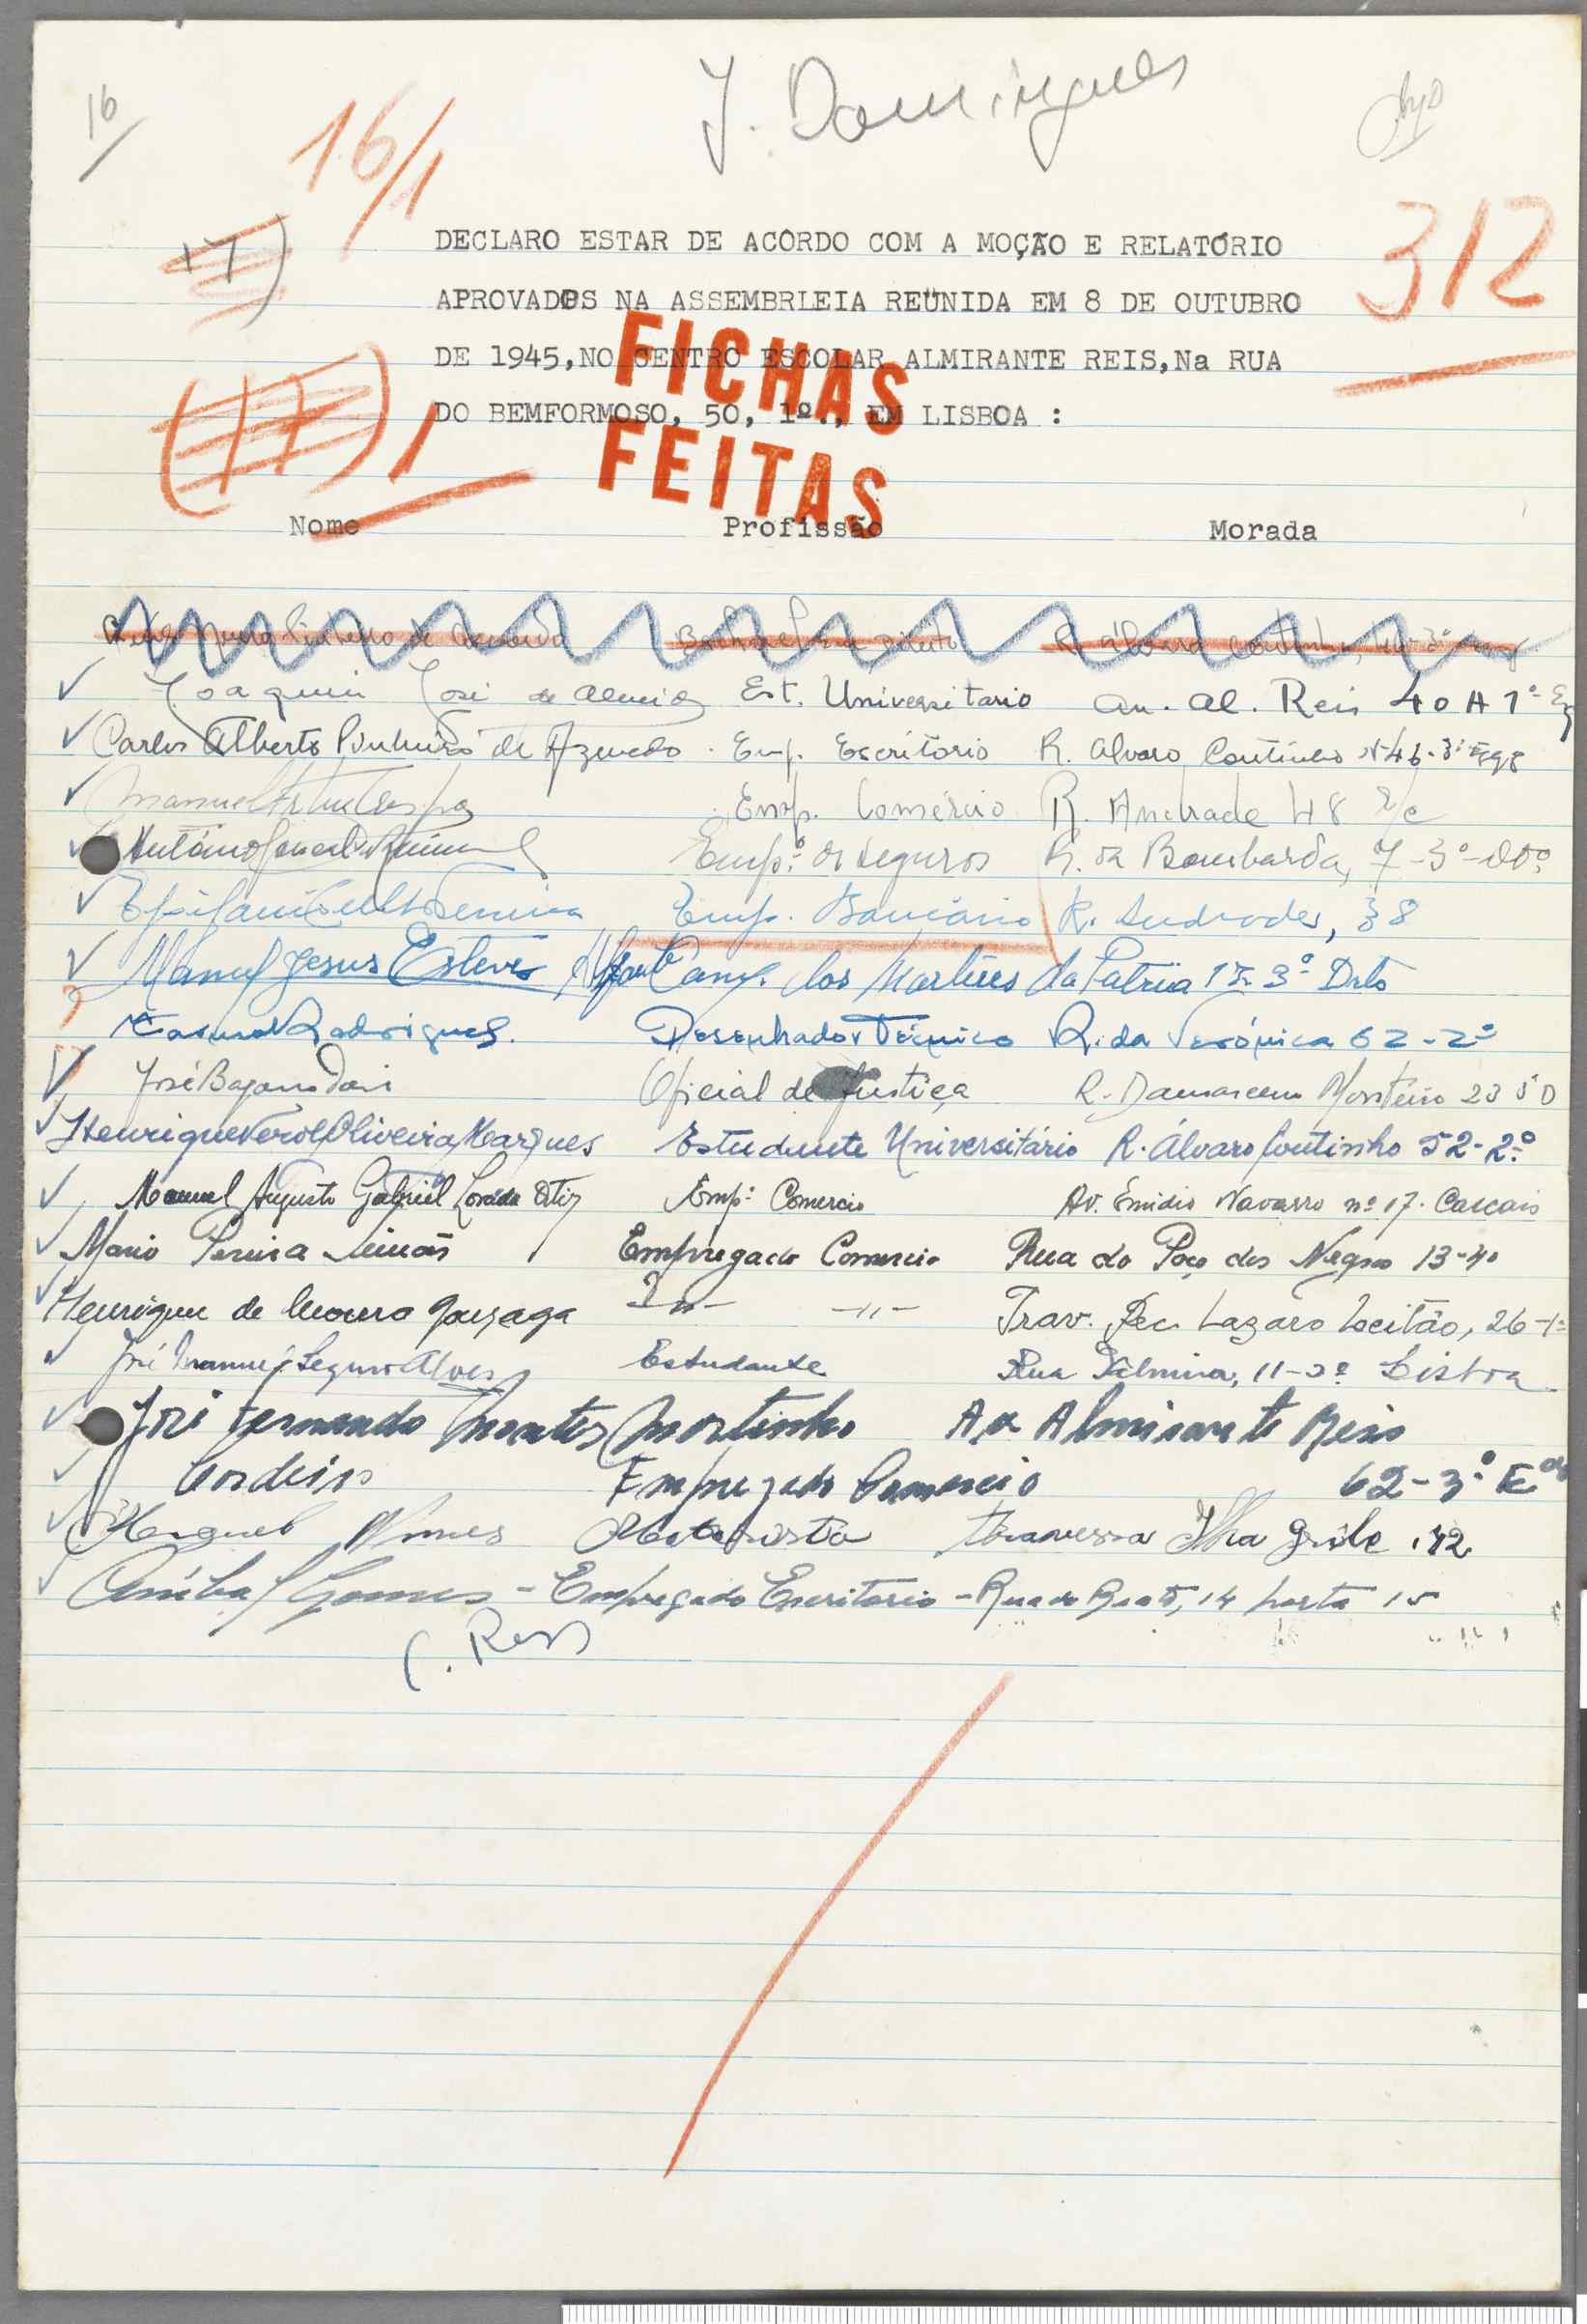 16
16/1
J. Domingues
312
17)
DECLARO ESTAR DE ACÔRDO COM A MOÇÃO E RELATÓRIO
APROVADOS NA ASSEMBRLEIA REÜNIDA EM 8 DE OUTUBRO
DE 1945,NO CENTRO ESCOLAR ALMIRANTE REIS,Na RUA
DO BEMFORMOSO, 50, 1º., EM LISBOA :
FICHAS
FEITAS
(17) 1
Nome Profissão Morada
Joaquim José de Almeida Est. Universitario Av. Al. Reis 40 A 1º
Carlos Alberto Pinheiro de Azevedo Emp. Escritorio R. Alvaro Coutinho Nº 46-3º Esqº
Manuel Emp. Comércio R. Andrade 48 r/c
António Empº de seguros R. da Bombarda, 7-3º-Dtº
Emp. Bancário R. Andrade, 38
Manuel Jesus Esteves Camp. dos Martires da Patria 3º Dto
Rodrigues. Desenhador Técnico R. da Verónica 62-2º
José Oficial de Justiça R. Damasceno Monteiro 23 5º D
Henrique Verol Oliveira Marques Estudante Universitário R. Álvaro Coutinho 52-2º
Manuel Augusto Gabriel Empº Comercio Av. Emidio Navarro nº 17. Cascais
Mario Pereira Empregado Comercio Rua do Poço dos Negros 13-4º
Henrique de Moura Gonzaga -"- -"- Trav. Rec. Lazaro Leitão, 26-1º
José Manuel Seguro Alves Estudante Rua Palmira, 11-2º Lisboa
José Fernando Montes Martinho Av Almirante Reis
Cordeiro Empregado Comercio 62-3º Edº
Manuel Nunes Motorista Travessa Ilha do Grilo 42
Anibal Gomes - Empregado Escritorio - Rua do 14 porta 15
(. Reis